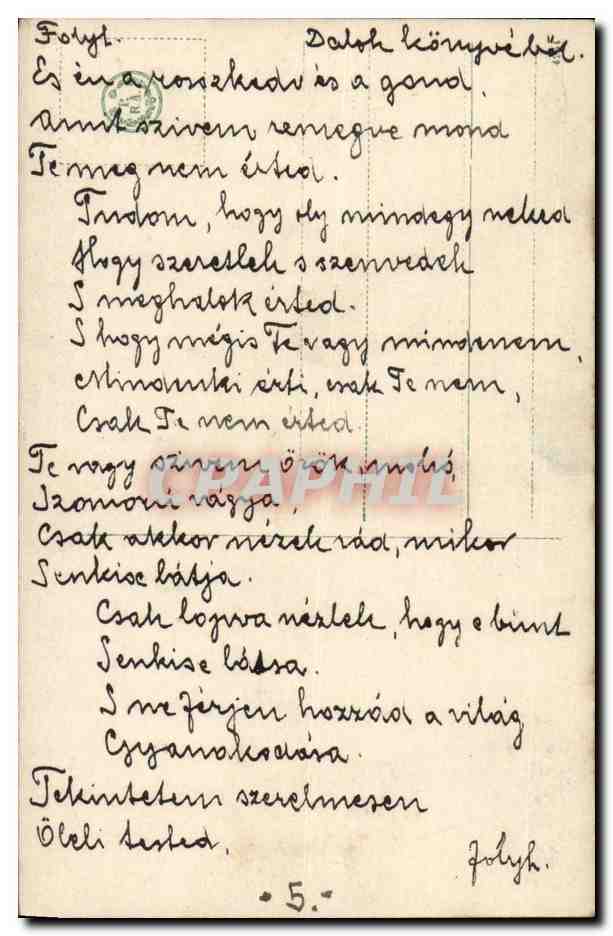 Folyt. Dalok könyvéből.
És én a rosszkedv és a gond,
Amit szivem remegve mond
Te meg nem érted.
Tudom, hogy oly mindegy neked
Hogy szeretlek s szenvedek
S meghalok érted.
S hogy mégis Te vagy mindenem,
Mindenki érti, csak Te nem,
Csak Te nem érted.
Te vagy szivem örök, mohó,
Szomorú vágya,
Csak akkor nézek rád, mikor
Senkise látja.
Csak lopva nézlek, hogy e bünt
Senkise lássa.
S ne férjen hozzád a világ
Gyanakodása.
Tekintetem szerelmesen
Öleli tested,
folyt.
- 5. -
CPAPHIL